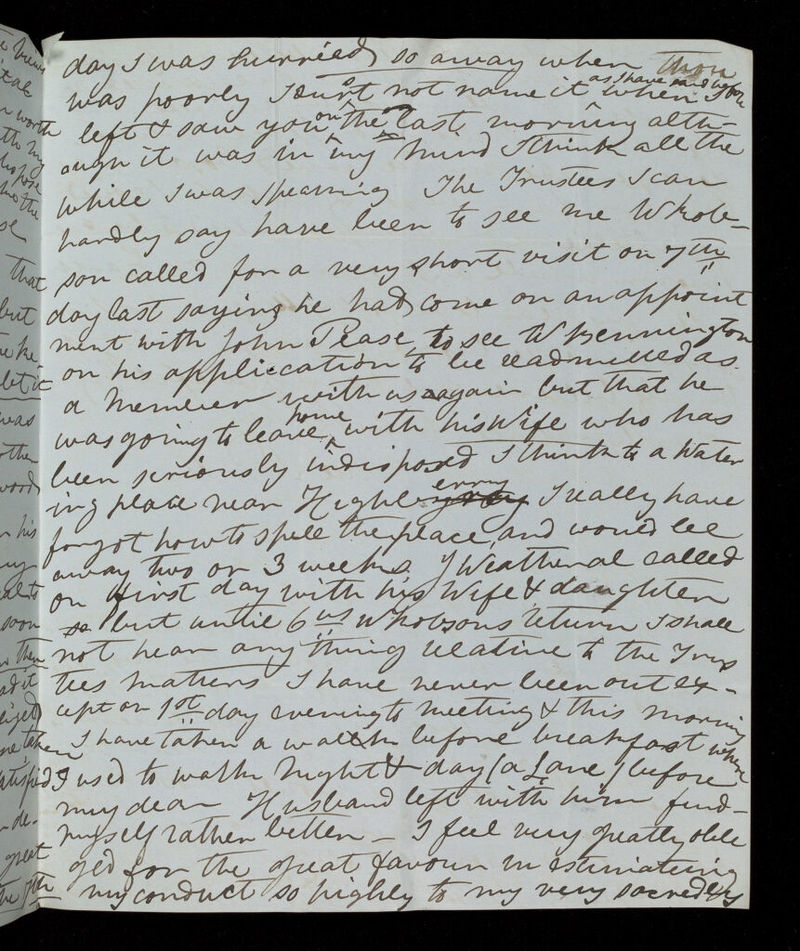 day I was hurried so away when thou
was poorly I durst not name it as I have said before when I
left & saw you on the last morning alth-
ough it was in my mind I think all the
while I was speaking The Trustees I can
hardly say have been to see me W Hob-
son called for a very short visit on 7th
day last saying he had come on an appoint
ment with John Pease to see W Bennington
on his application to be readmitted as
a Member with us again but that he
was going to leave home with his Wife who has
been seriously indisposed I think to a Water
ing place near High I really have
forgot how to spell the place and would be
away two or 3 weeks J Weatheral called
on First day with his Wife & daughter
so but until W Hobsons return I shall
not hear any thing relative to the Trus
tees matters I have never been out ex-
cept on 1st day evening to Meeting & this morning
I have taken a walk before breakfast where
I used to walk Night & day (a Lane) before
my dear Husband left with him find-
myself rather better - I feel very greatly obli
ged for the great favour in estimateing
my conduct so highly to my very sacredly